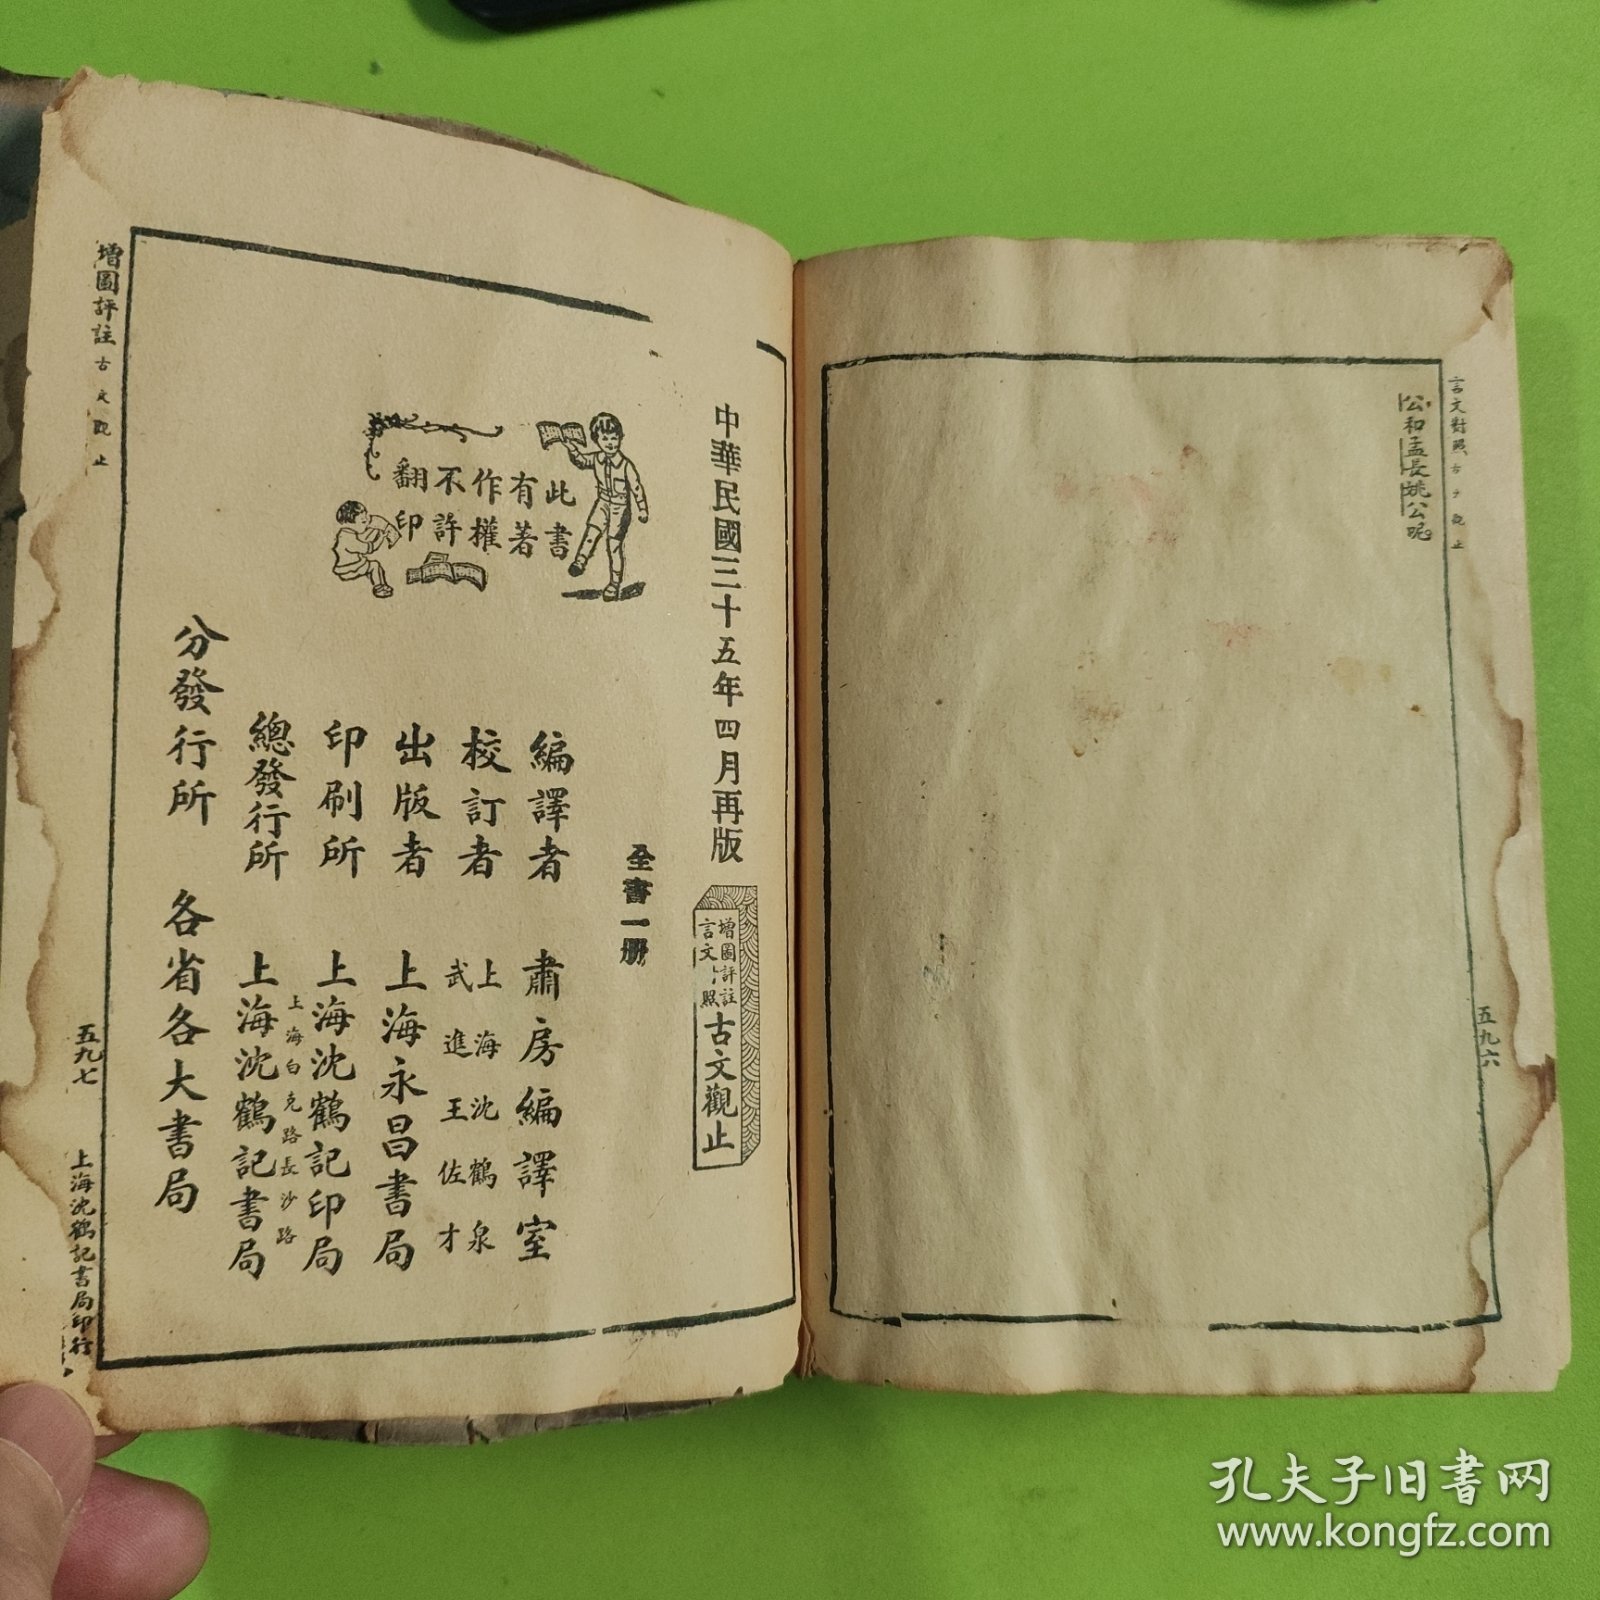 言文對照古文觀止
公和孟長姚公呢
五九六
中華民國三十五年四月再版
增圖評註
言文 照
古文觀止
全書一册
此書
有著
作權
不許
翻印
編譯者 肅房編譯室
校訂者 上海沈鶴泉
武進王佐才
出版者 上海永昌書局
印刷所 上海沈鶴記印局
上海白克路長沙路
總發行所 上海沈鶴記書局
分發行所 各省各大書局
增圖評註古文觀止
五九七
上海沈鶴記書局印行
孔夫子旧书网
www.kongfz.com